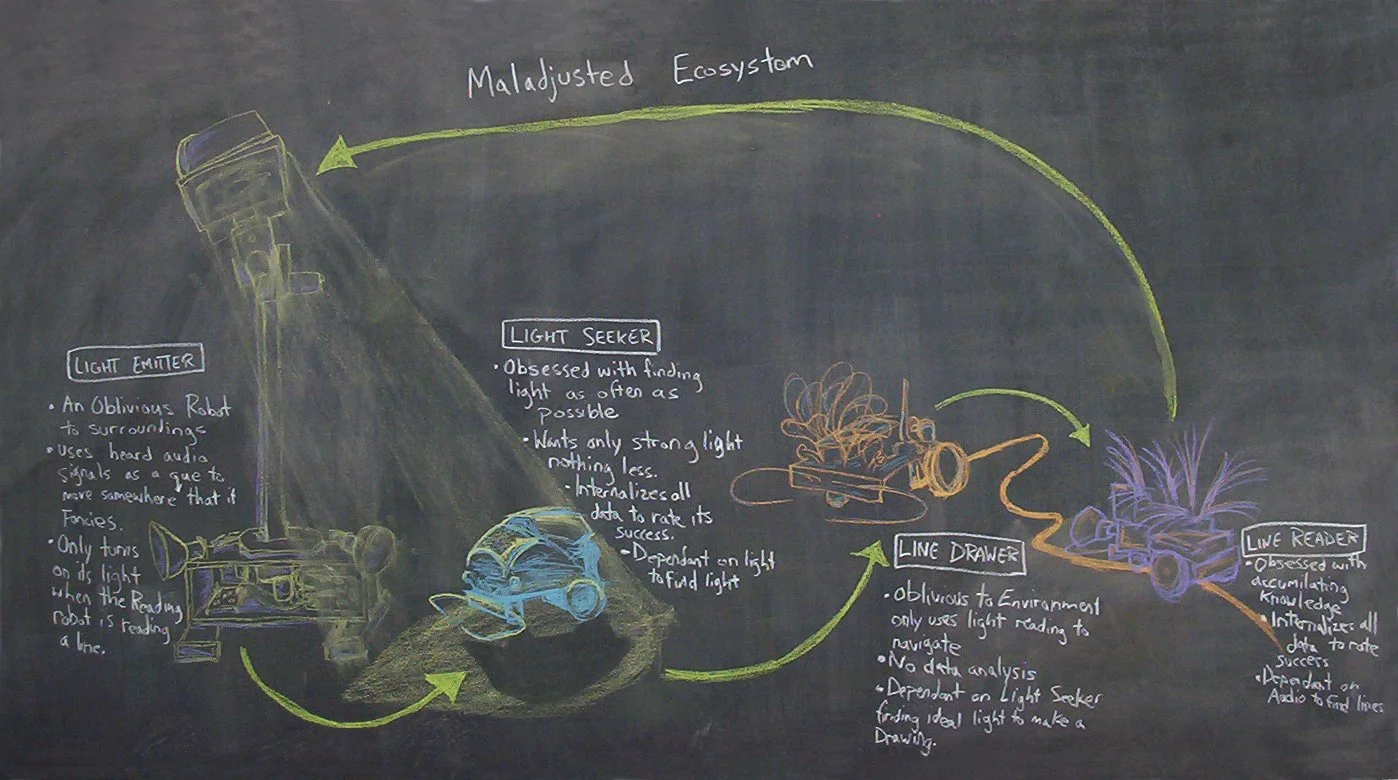 Maladjusted Ecosystem
LIGHT EMITTER
• An Oblivious Robot
to surroundings
• Uses heard audio
signals as a que to
move somewhere that it
Fancies.
• Only turns
on its light
when the Reading
robot is reading
a line.
LIGHT SEEKER
• Obsessed with finding
light as often as
possible
• Wants only strong light
nothing less.
• Internalizes all
data to rate its
success.
• Dependant on light
to find light
LINE DRAWER
• Oblivious to Environment
only uses light reading to
navigate
• No data analysis
• Dependant on Light Seeker
finding ideal light to make a
Drawing.
LINE READER
• Obsessed with
accumilating
Knowledge
• Internalizes all
data to rate
success
• Dependant on
Audio to find lines